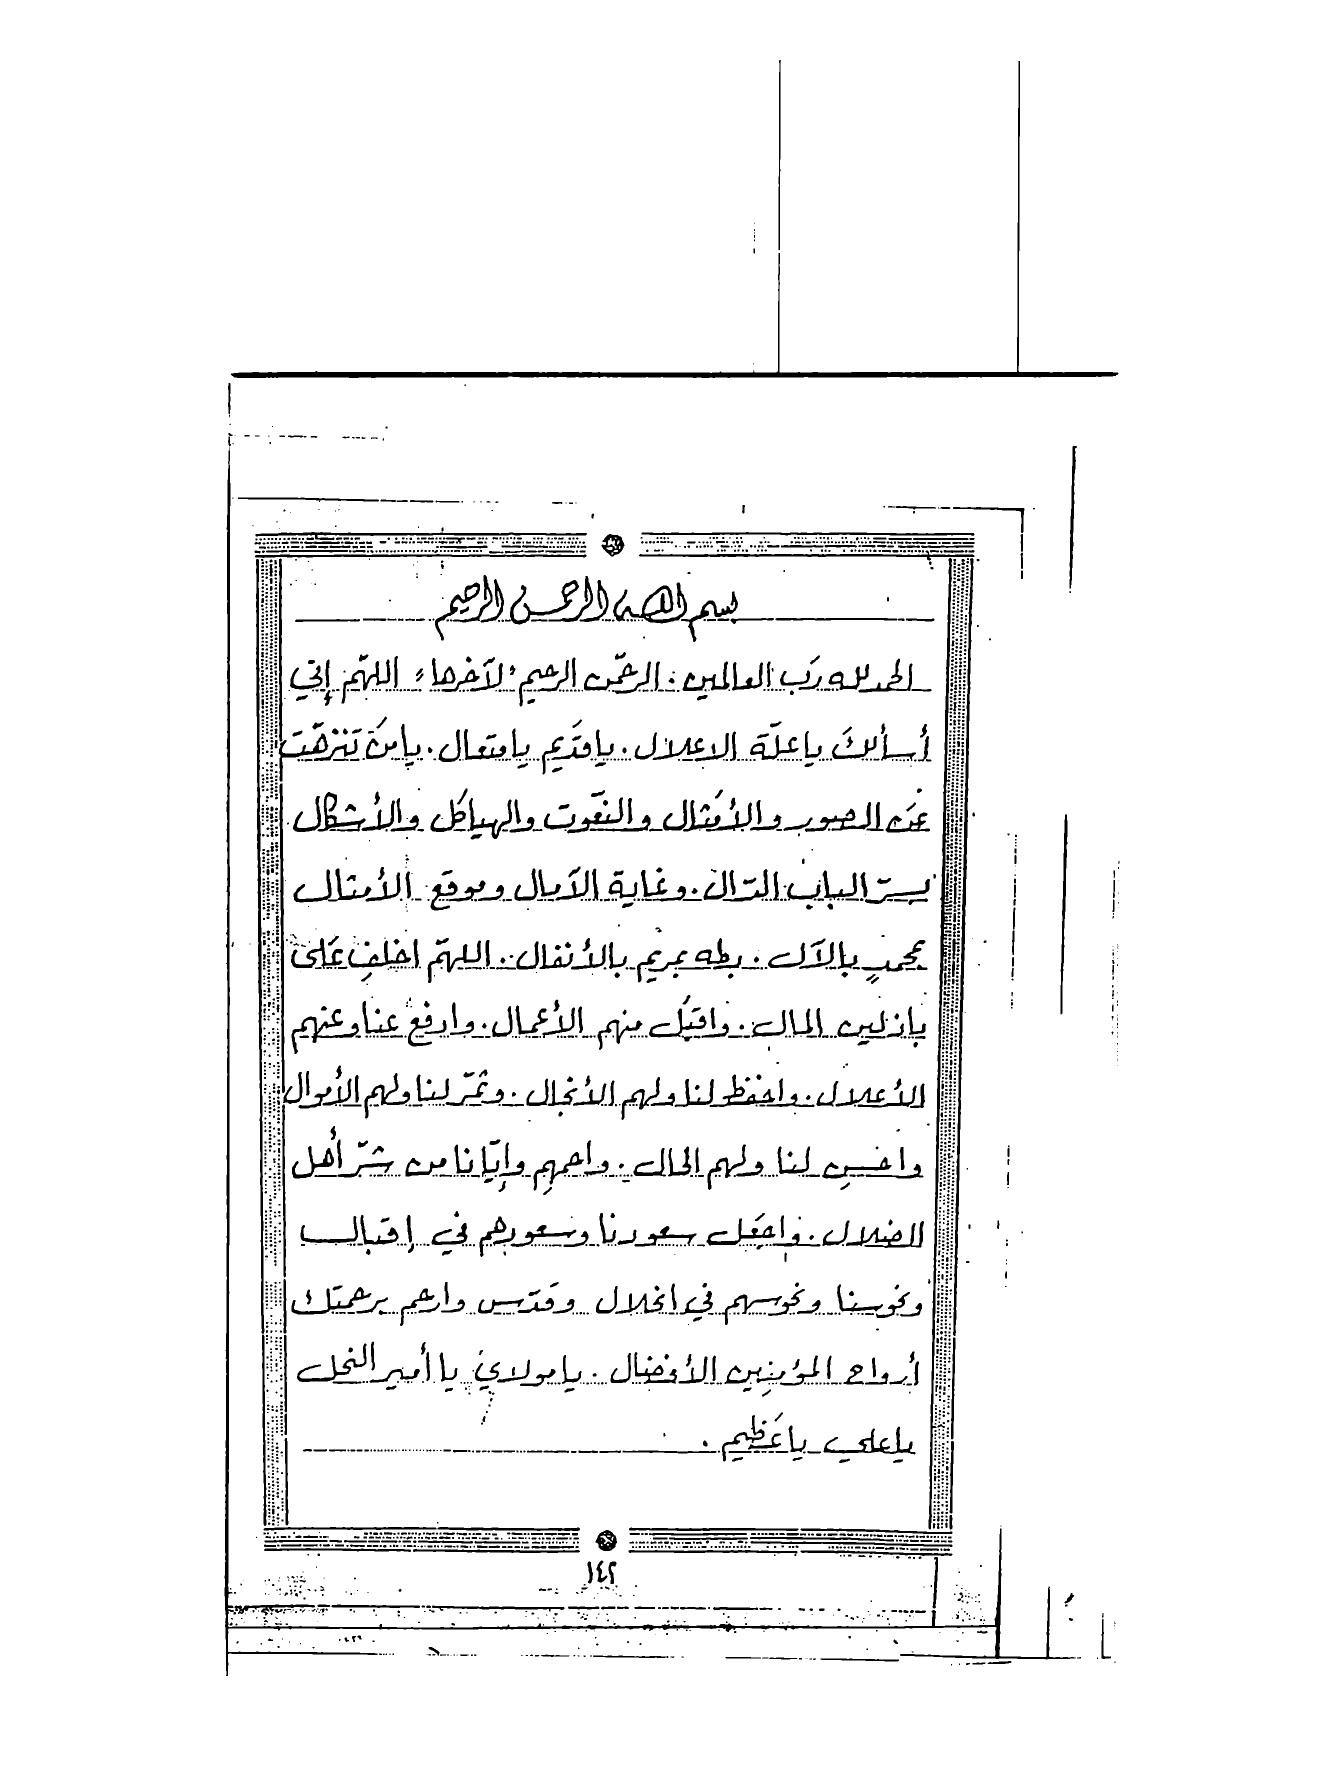 بسم الله الرحمن الرحيم
الحمد لله رَب العالمين . الرحمّن الرحيم " لآخرها " اللهّم إني
أسألكَ يا علّة الاعلال . يا قدَيم يا متعال . يا منَ تَنزهّت
عَنه الصور والأمَثال والنعَوت والهياكل والأشكال
بسرّ الباب الدّال . وغاية الآمال وموقع الأمثال
بمحمدٍ بالآل . بطه بمريم بالأنفال . اللهمّ اخلفِ عَلى
باذلين المال . واقبَل منهم الأعمال . وادفع عنا وعنهم
الأعلال . واحفظ لنا ولهم الأنجال . وثمّر لنا ولهم الأموال
واحسِن لنا ولهم الحال . واحمهِم وإيّانا من شرّ أهل
الضلال . واجعَل سعودنا وسعودهم في إقبال
ونحوسنا ونحوسهم في انحلال وقدّس وارحم برحمتك
أرواح المؤمنِين الأفضال . يا مولاي يا أمير النحل
يا علي يا عَظيم .
١٤٢